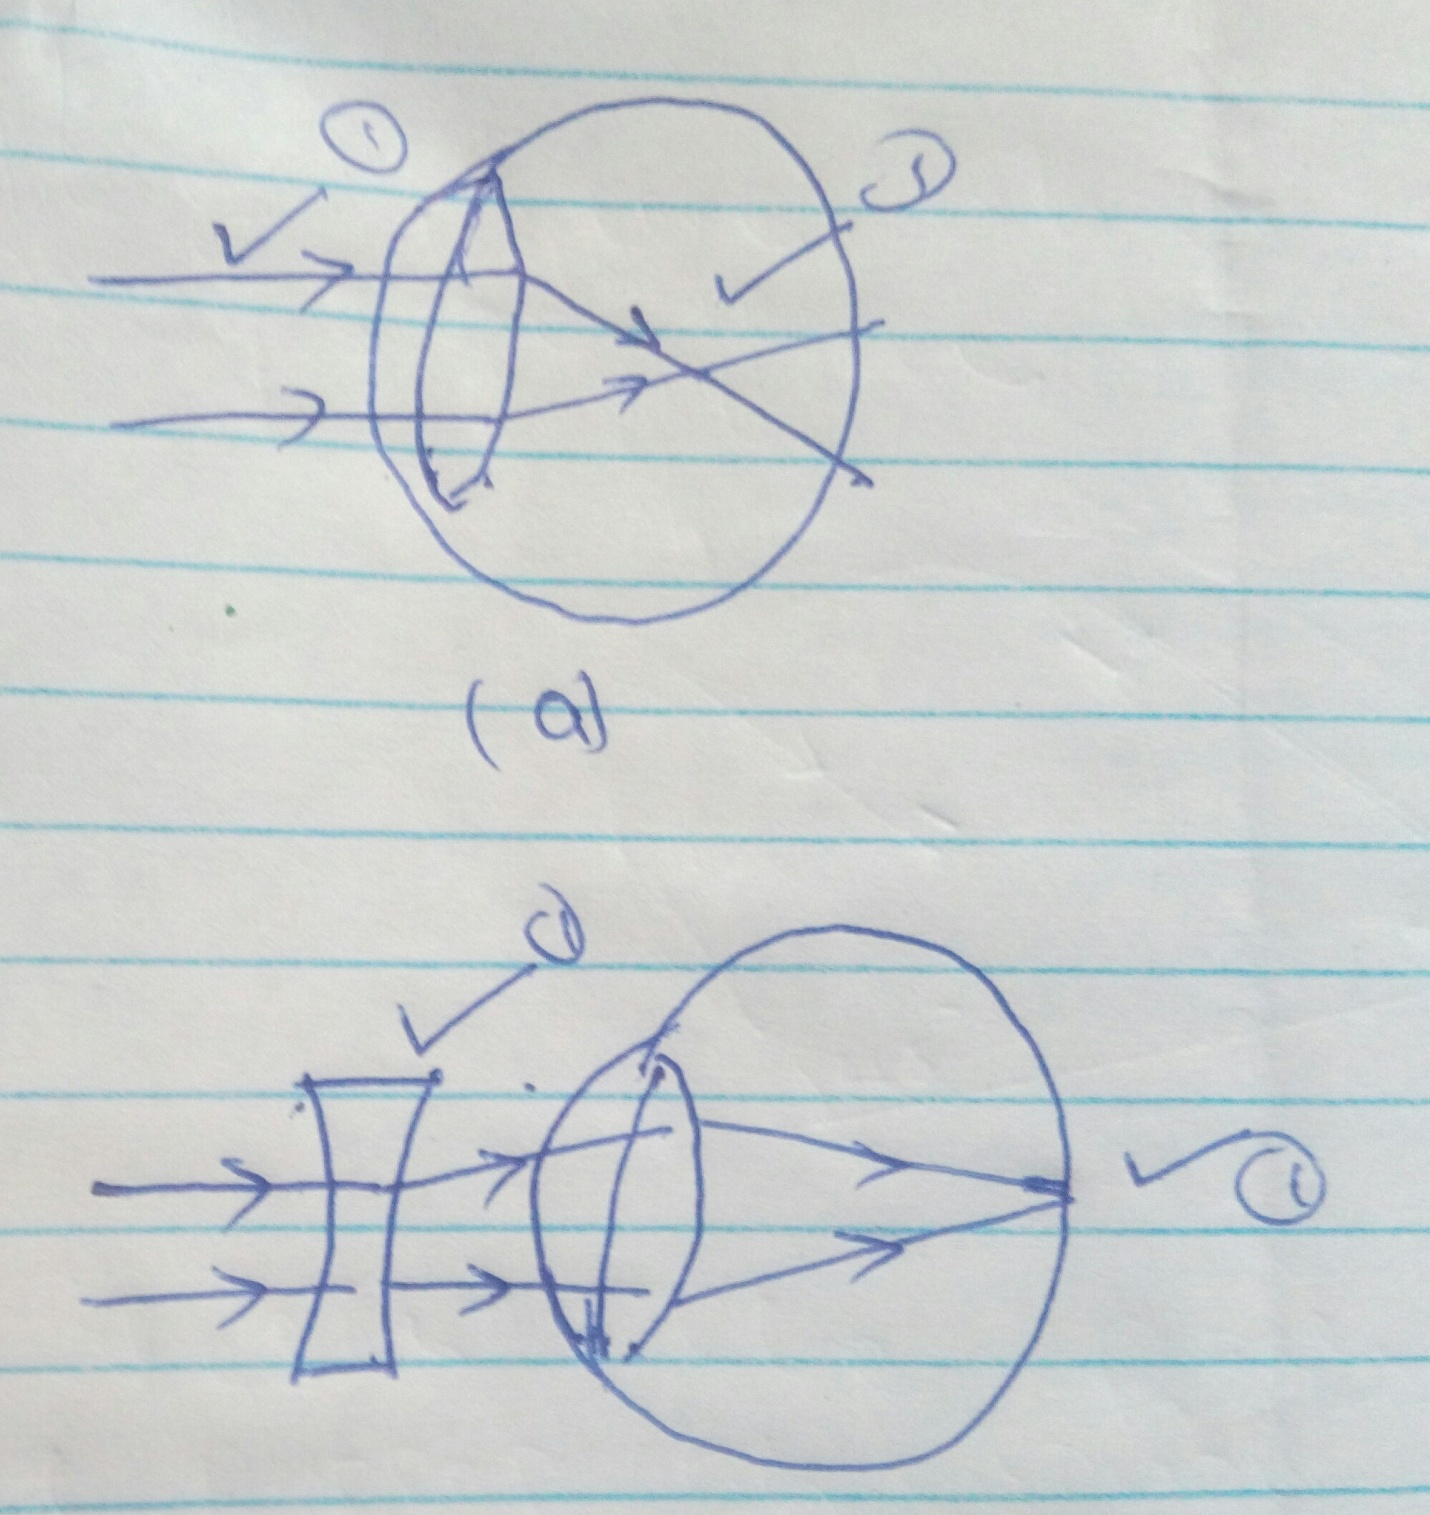 ①
①
(a)
①
①